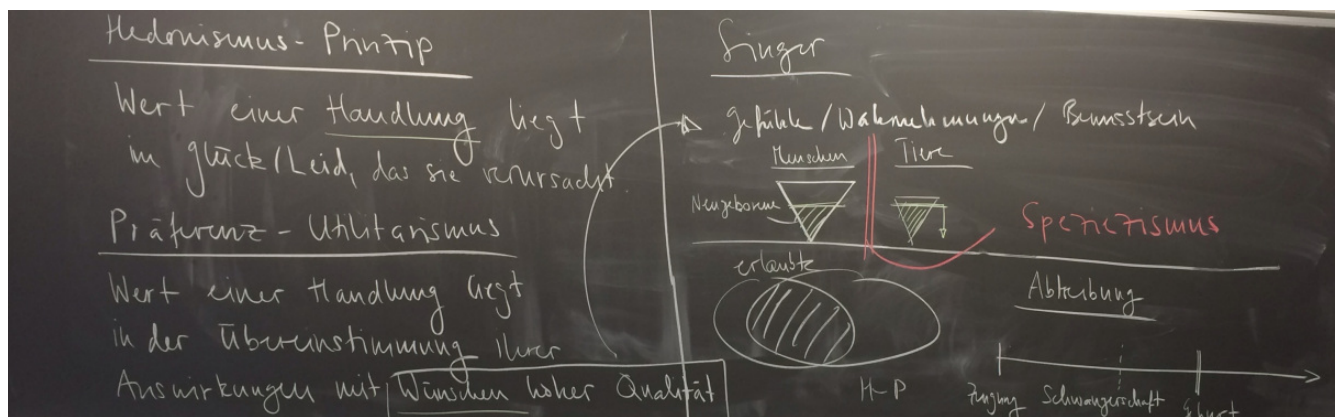 Hedonismus-Prinzip
Wert einer Handlung liegt
im Glück/Leid, das sie verursacht.
Präferenz-Utilitarismus
Wert einer Handlung liegt
in der Übereinstimmung ihrer
Auswirkungen mit Wünschen hoher Qualität
Singer
Gefühle/Wahrnehmungen/Bewusstsein
Menschen
Tiere
Neugeborene
Speziezismus
erlaubte
H-P
Abtreibung
Zeugung
Schwangerschaft
Geburt